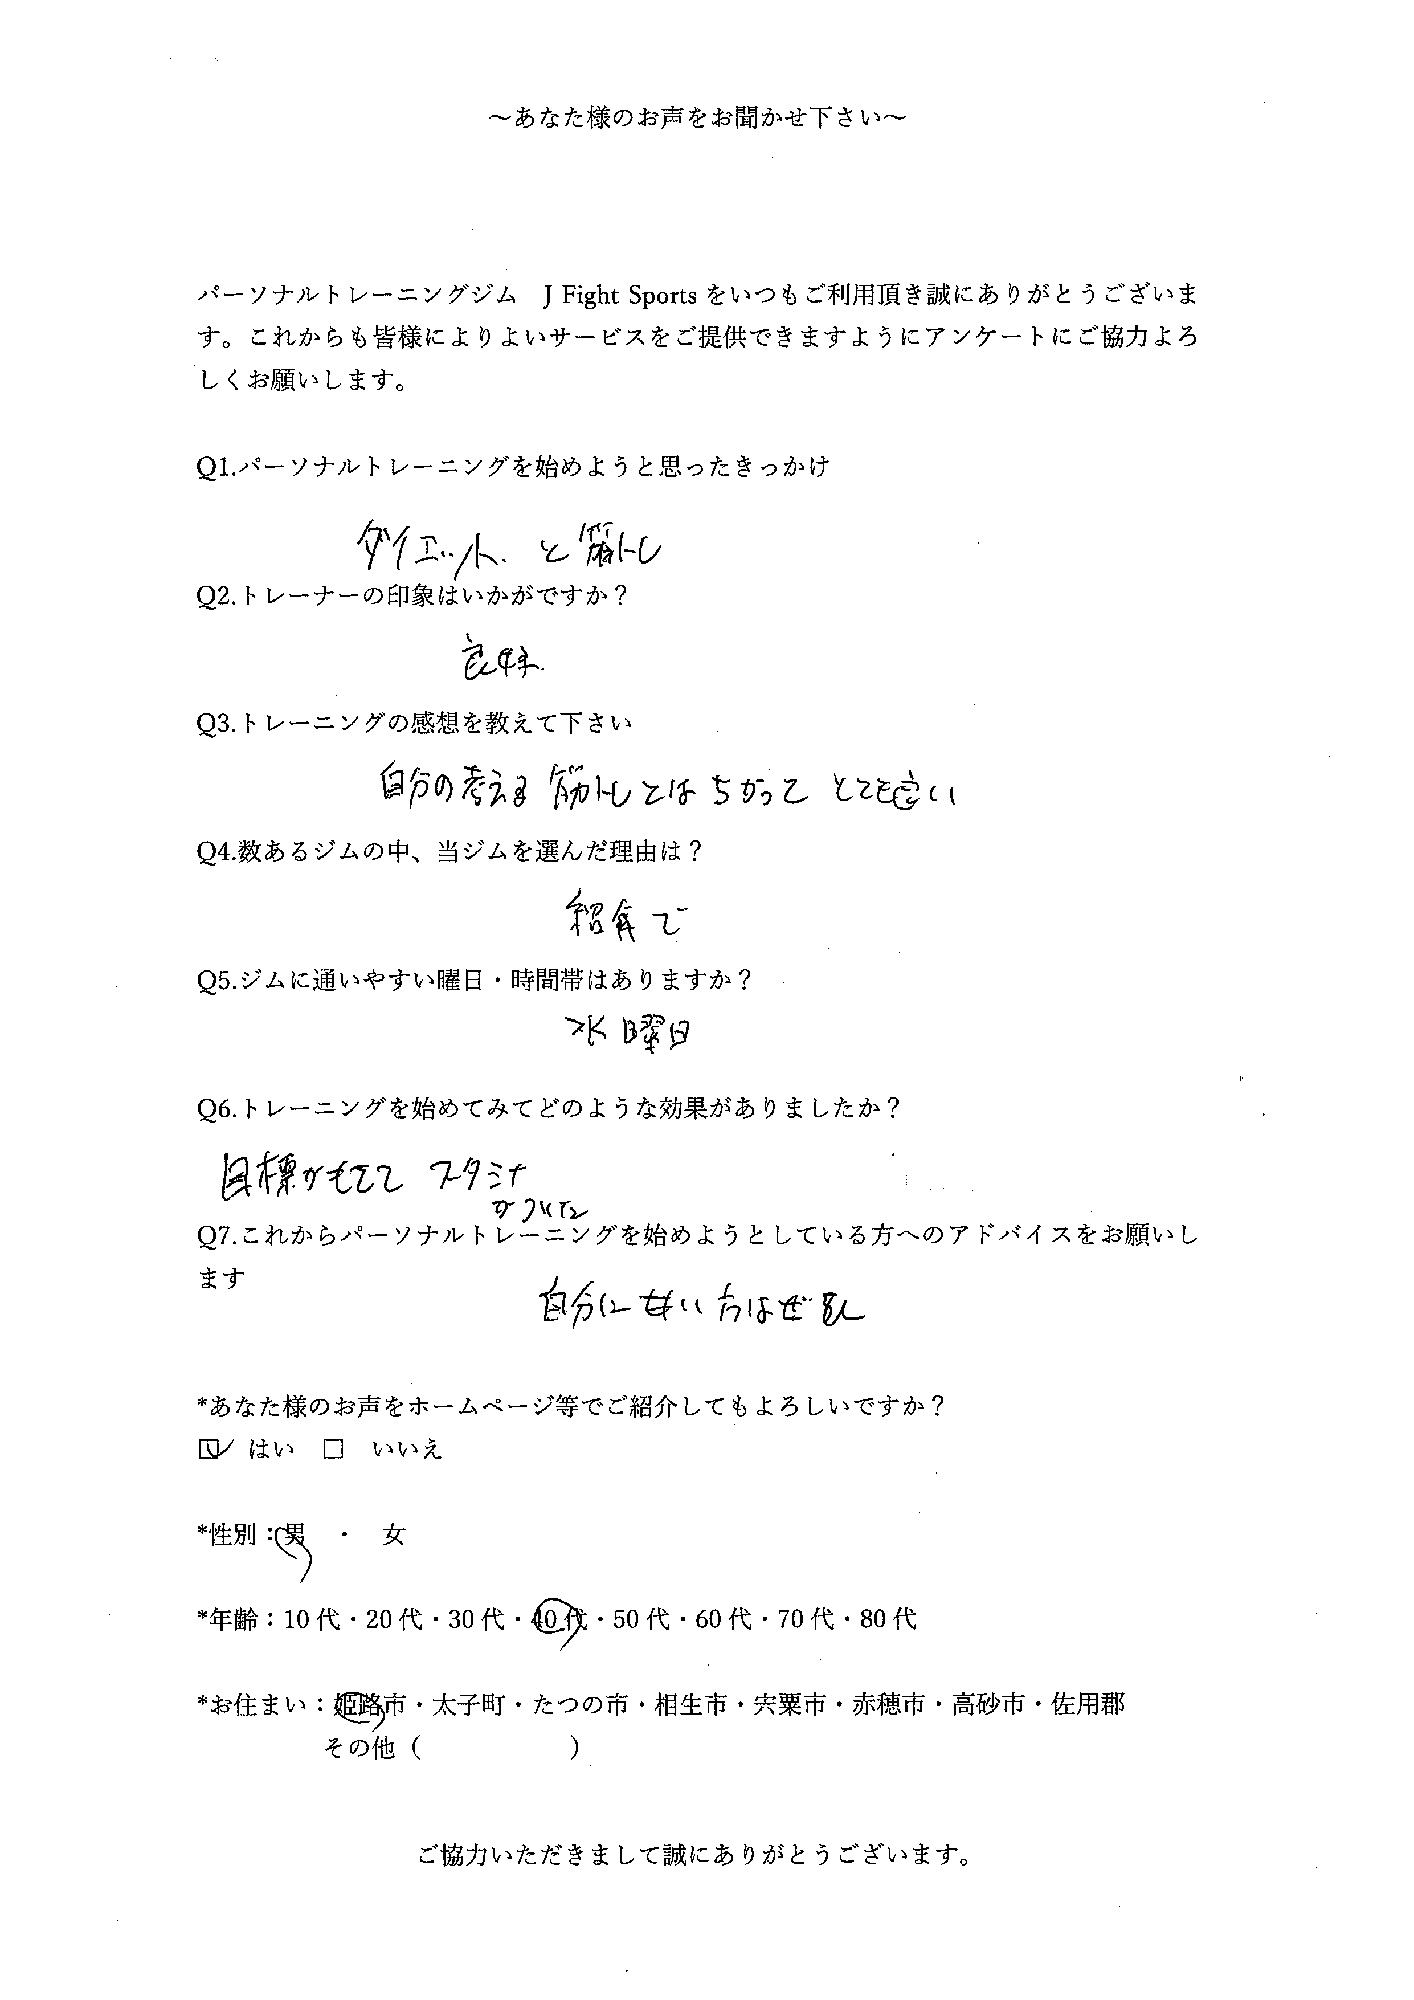 ～あなた様のお声をお聞かせ下さい～
パーソナルトレーニングジム　J Fight Sports をいつもご利用頂き誠にありがとうございま
す。これからも皆様によりよいサービスをご提供できますようにアンケートにご協力よろ
しくお願いします。
Q1.パーソナルトレーニングを始めようと思ったきっかけ
ダイエット と 筋トレ
Q2.トレーナーの印象はいかがですか？
Q3.トレーニングの感想を教えて下さい
自分の考える 筋トレとは ちがって とても良い
Q4.数あるジムの中、当ジムを選んだ理由は？
紹介で
Q5.ジムに通いやすい曜日・時間帯はありますか？
水曜日
Q6.トレーニングを始めてみてどのような効果がありましたか？
目標がもてて スタミナ
がついた
Q7.これからパーソナルトレーニングを始めようとしている方へのアドバイスをお願いし
ます
自分に甘い方はぜひ
*あなた様のお声をホームページ等でご紹介してもよろしいですか？
☑ はい　□　いいえ
*性別：男　・　女
*年齢：10 代・20 代・30 代・40 代・50 代・60 代・70 代・80 代
*お住まい：姫路市・太子町・たつの市・相生市・宍粟市・赤穂市・高砂市・佐用郡
その他（　　　　　　）
ご協力いただきまして誠にありがとうございます。